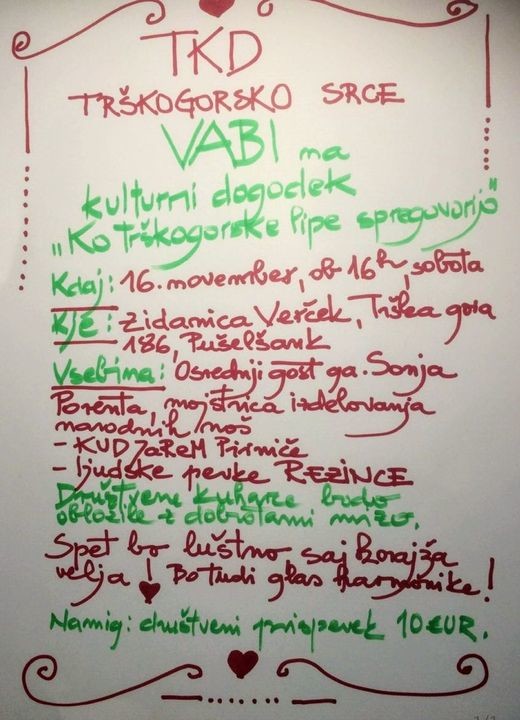 TKD
TRŠKOGORSKO SRCE
VABI na
kulturni dogodek
„Ko Trškogorske lipe spregovorijo"
Kdaj: 16. november, ob 16h, sobota
Kje: Zidanica Verček, Trška gora
186, Pušelšank
Vsebina: Osrednji gost ga. Sonja
Porenta, mojstrica izdelovanja
narodnih noš
- KUD JaReM Pirniče
- ljudske pevke REZINCE
Društvene kuharce bodo
obložile z dobrotami mizo.
Spet bo luštno saj korajža
velja! Bo tudi glas harmonike!
Namig: društveni prispevek 10 EUR.